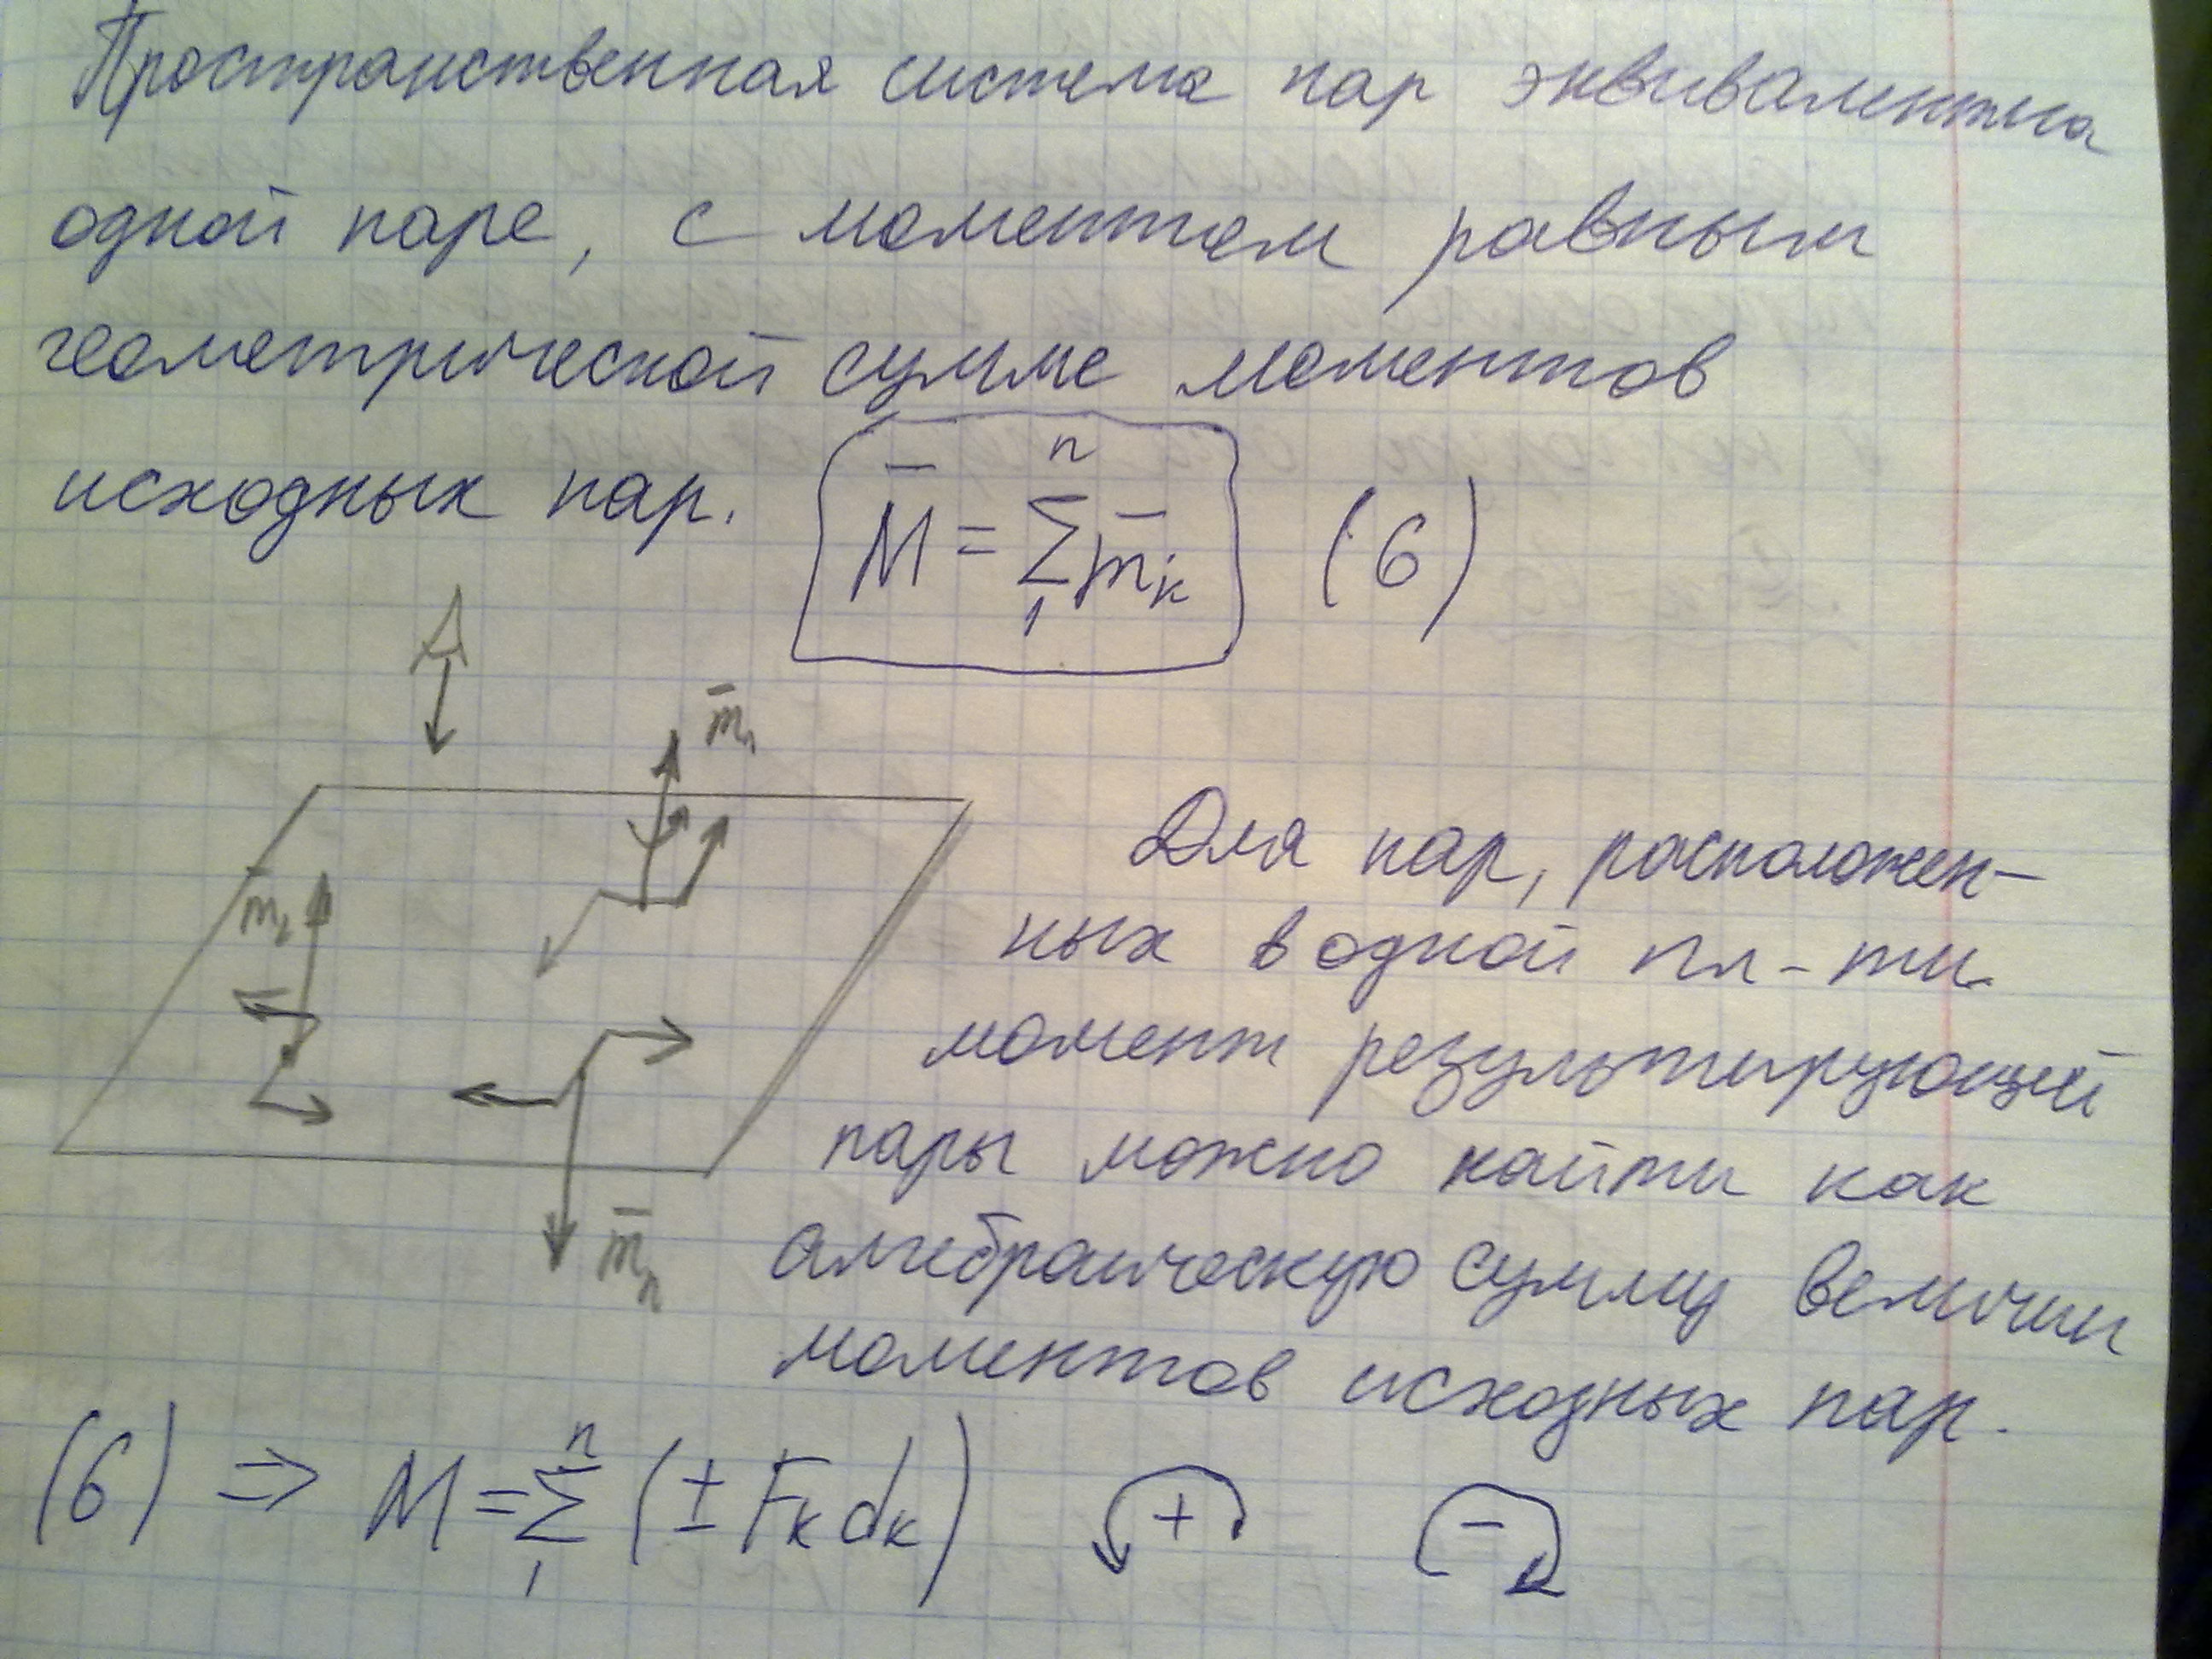 Пространственная система пар эквивалентна
одной паре, с моментом равным
геометрической сумме моментов
исходных пар.
n
M̄ = Σ m̄k (6)
1
m̄1
m̄2
m̄n
Для пар, расположен-
ных в одной пл-ти
момент результирующей
пары можно найти как
алгебраическую сумму величин
моментов исходных пар.
n
(6) ⇒ M = Σ (± Fk dk) + −
1